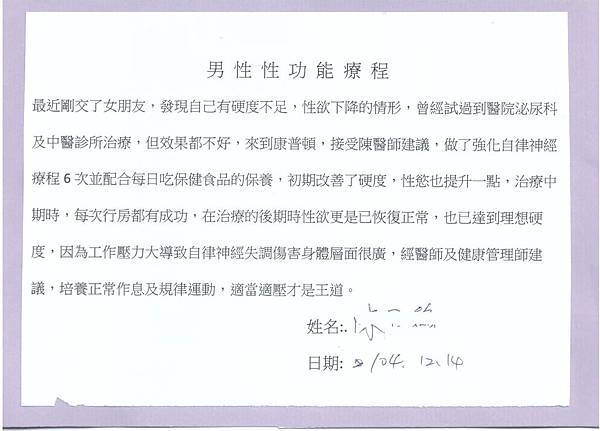 男性性功能療程
最近剛交了女朋友，發現自己有硬度不足，性欲下降的情形，曾經試過到醫院泌尿科
及中醫診所治療，但效果都不好，來到康普頓，接受陳醫師建議，做了強化自律神經
療程 6 次並配合每日吃保健食品的保養，初期改善了硬度，性慾也提升一點，治療中
期時，每次行房都有成功，在治療的後期時性欲更是已恢復正常，也已達到理想硬
度，因為工作壓力大導致自律神經失調傷害身體層面很廣，經醫師及健康管理師建
議，培養正常作息及規律運動，適當適壓才是王道。
姓名:.
日期: /04. 12.14